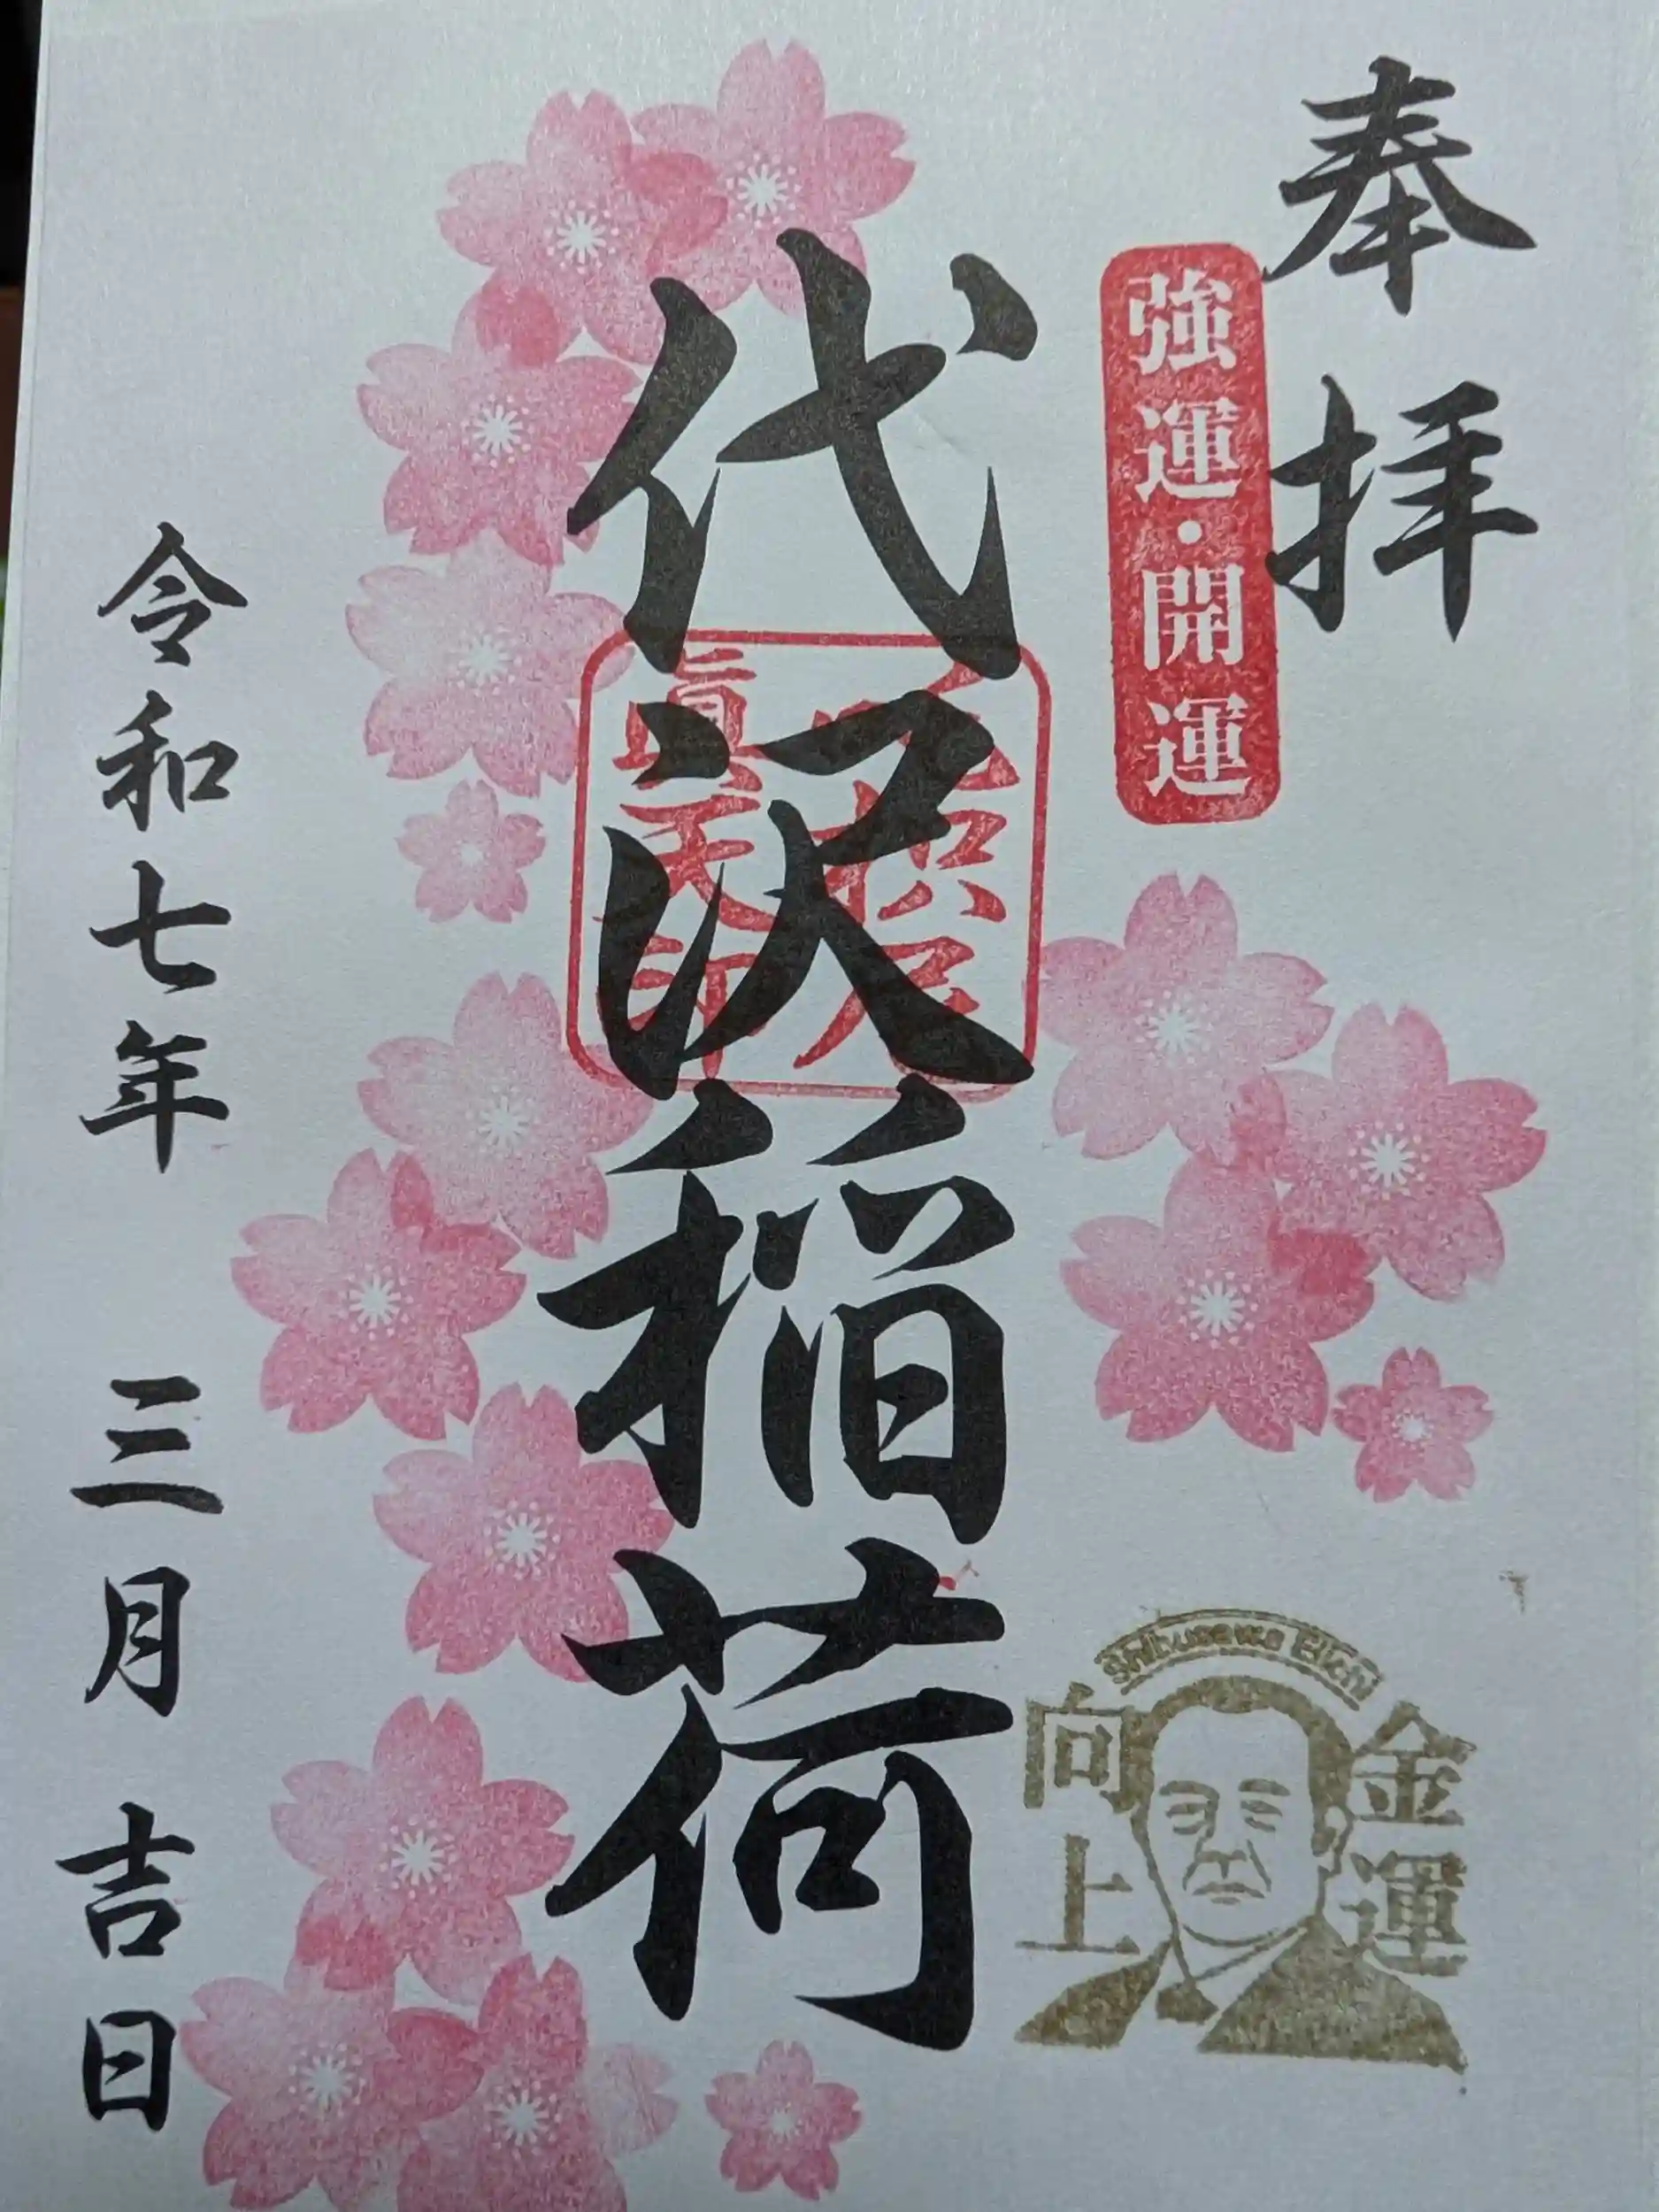 奉拝
強運・開運
代沢稲荷
令和七年 三月 吉日
Shibusawa Eiichi
金運
向上